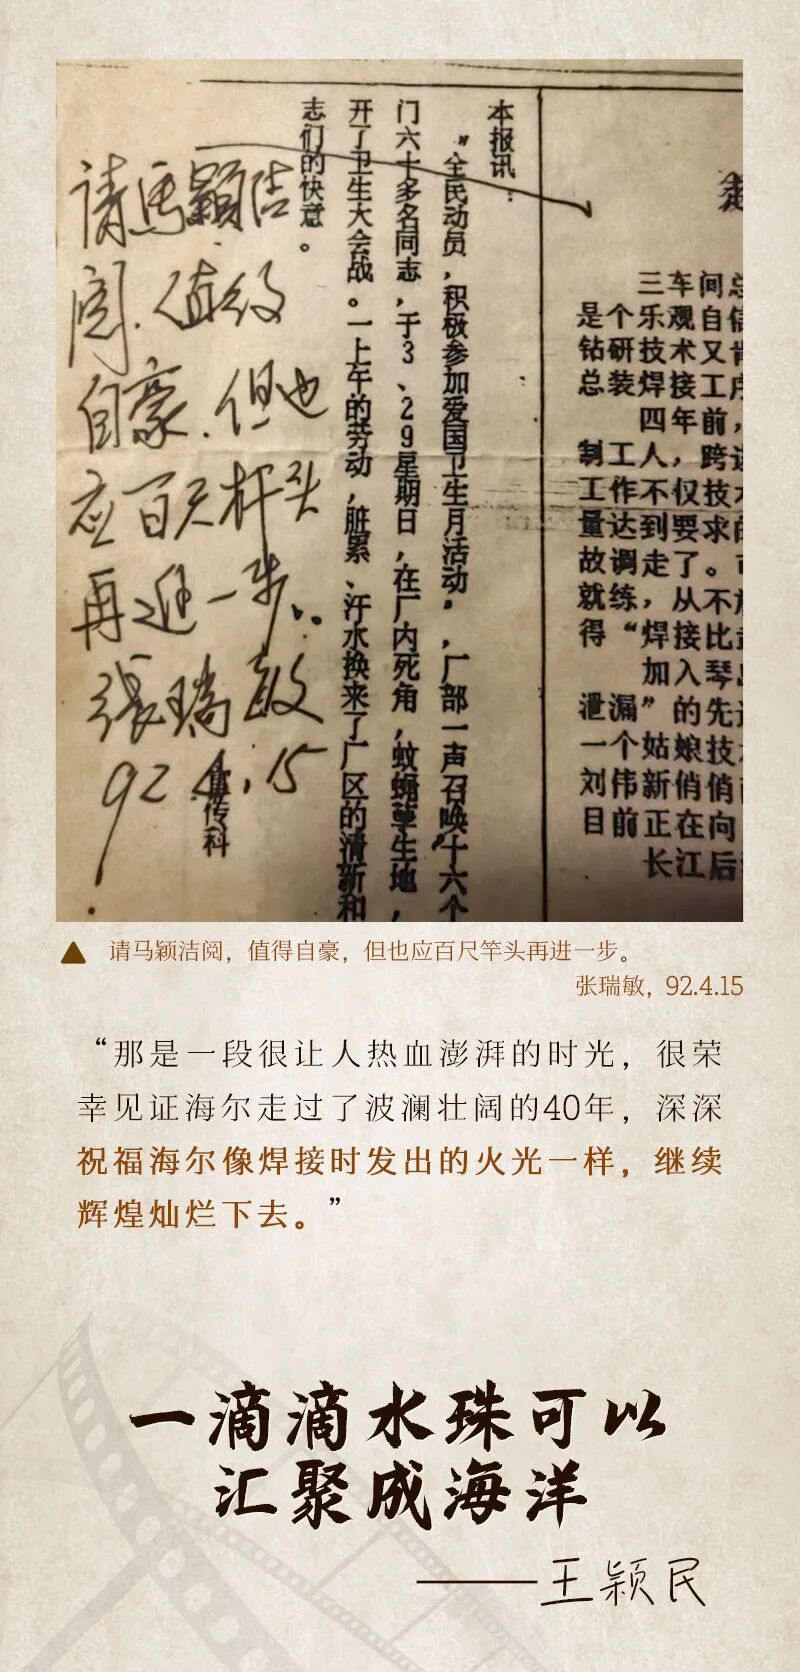 请马颖洁
阅.值得
自豪.但也
应百尺杆头
再进一步..
张瑞敏
92.4.15
本报讯：
“全民动员，积极参加爱国卫生月活动”，厂部一声召唤，十六个
门六十多名同志，于3、29星期日，在厂内死角，蚊蝇孳生地，
开了卫生大会战。一上午的劳动，脏累、汗水换来了厂区的清新和
志们的快意。
传科
三车间总
是个乐观自信
钻研技术又肯
总装焊接工序
四年前，
制工人，跨进
工作不仅技术
量达到要求的
故调走了。
就练，从不放
得“焊接比武
加入琴岛
泄漏”的先进
一个姑娘技术
刘伟新俏俏
目前正在向
长江后
▲ 请马颖洁阅，值得自豪，但也应百尺竿头再进一步。
张瑞敏，92.4.15
“那是一段很让人热血澎湃的时光，很荣
幸见证海尔走过了波澜壮阔的40年，深深
祝福海尔像焊接时发出的火光一样，继续
辉煌灿烂下去。”
一滴滴水珠可以
汇聚成海洋
——王颖民